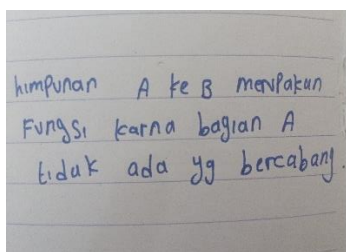 himpunan A ke B merupakan
Fungsi karna bagian A
tidak ada yg bercabang.